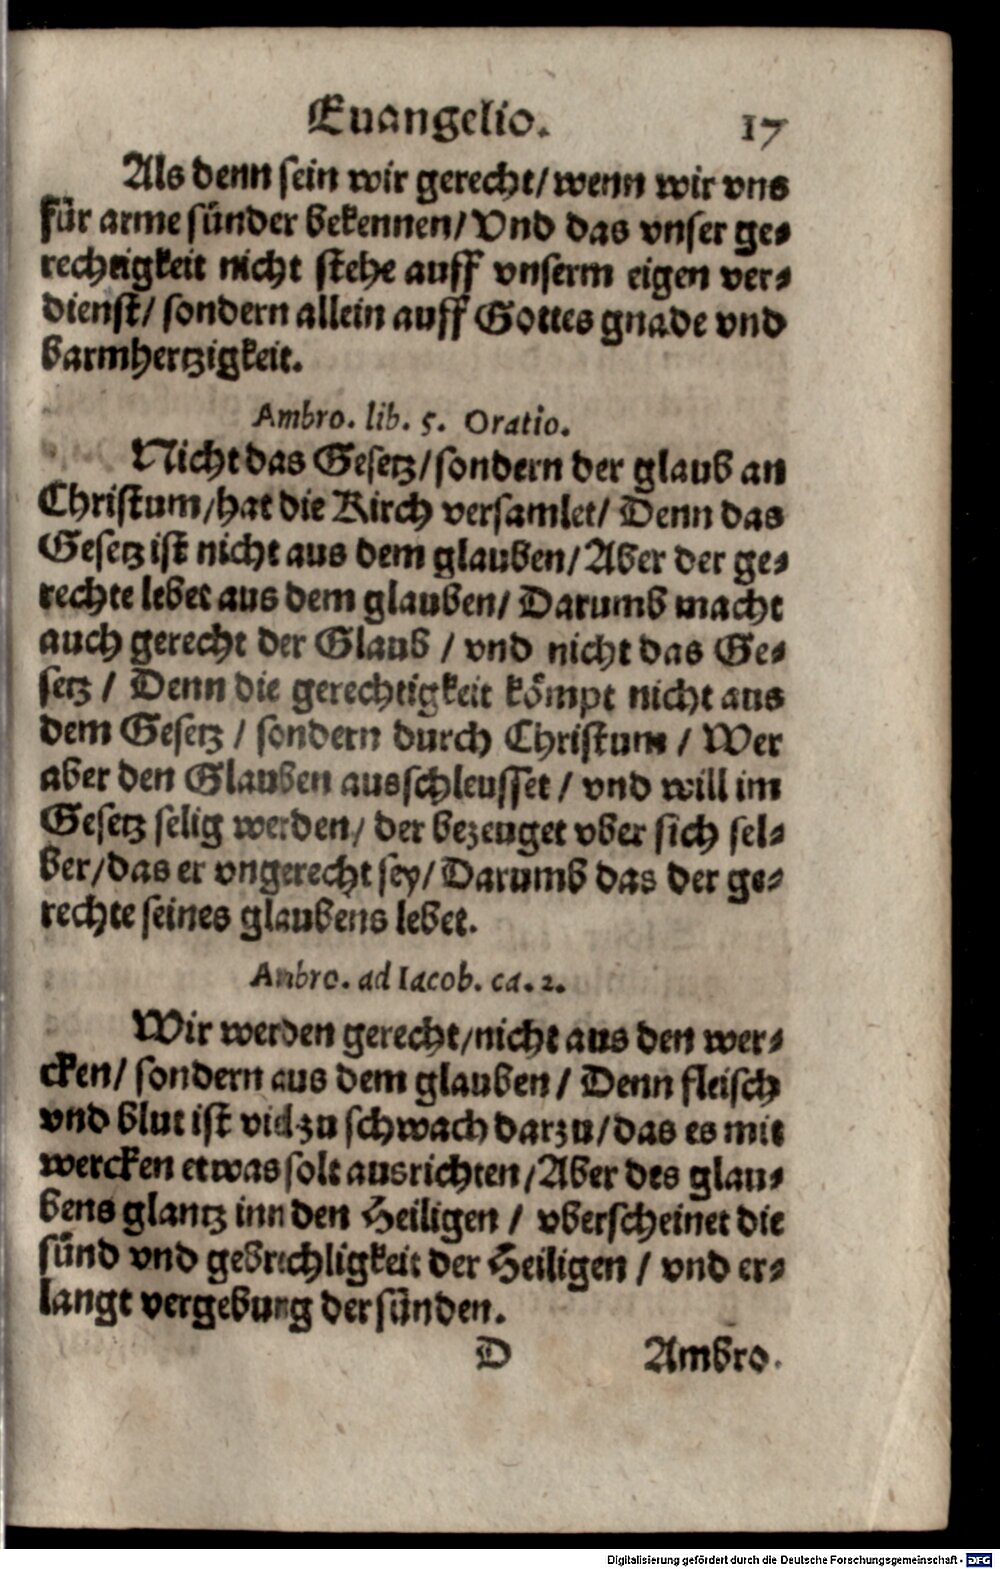 Euangelio. 17
Als denn sein wir gerecht/ wenn wir vns
für arme sünder bekennen/ Vnd das vnser ge-
rechtigkeit nicht stehe auff vnserm eigen ver-
dienst/ sondern allein auff Gottes gnade vnd
barmhertzigkeit.
Ambro. lib. 5. Oratio.
Nicht das Gesetz/ sondern der glaub an
Christum/ hat die Kirch versamlet/ Denn das
Gesetz ist nicht aus dem glauben/ Aber der ge-
rechte lebet aus dem glauben/ Darumb macht
auch gerecht der Glaub / vnd nicht das Ge-
setz / Denn die gerechtigkeit kömpt nicht aus
dem Gesetz / sondern durch Christum / Wer
aber den Glauben ausschleusset / vnd will im
Gesetz selig werden/ der bezeuget vber sich sel-
ber/ das er vngerecht sey/ Darumb das der ge-
rechte seines glaubens lebet.
Ambro. ad Iacob. ca. 2.
Wir werden gerecht/ nicht aus den wer-
cken/ sondern aus dem glauben / Denn fleisch
vnd blut ist viel zu schwach darzu/ das es mit
wercken etwas solt ausrichten/ Aber des glau-
bens glantz inn den Heiligen / vberscheinet die
sünd vnd gebrechligkeit der Heiligen / vnd er-
langt vergebung der sünden.
D Ambro.
Digitalisierung gefördert durch die Deutsche Forschungsgemeinschaft - DFG